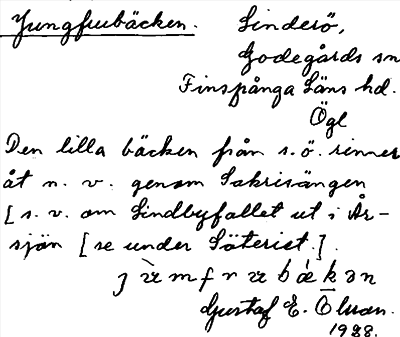 Jungfrubäcken. Sinderö,
Godegårds sn
Finspånga Läns hd.
Ögl
Den lilla bäcken från s.ö. rinner
åt n. v. genom Sakrisängen
[s. v. om Lindbyfallet ut i År-
sjön [se under Säterist.].
Gustaf E. Öluan.
1928.